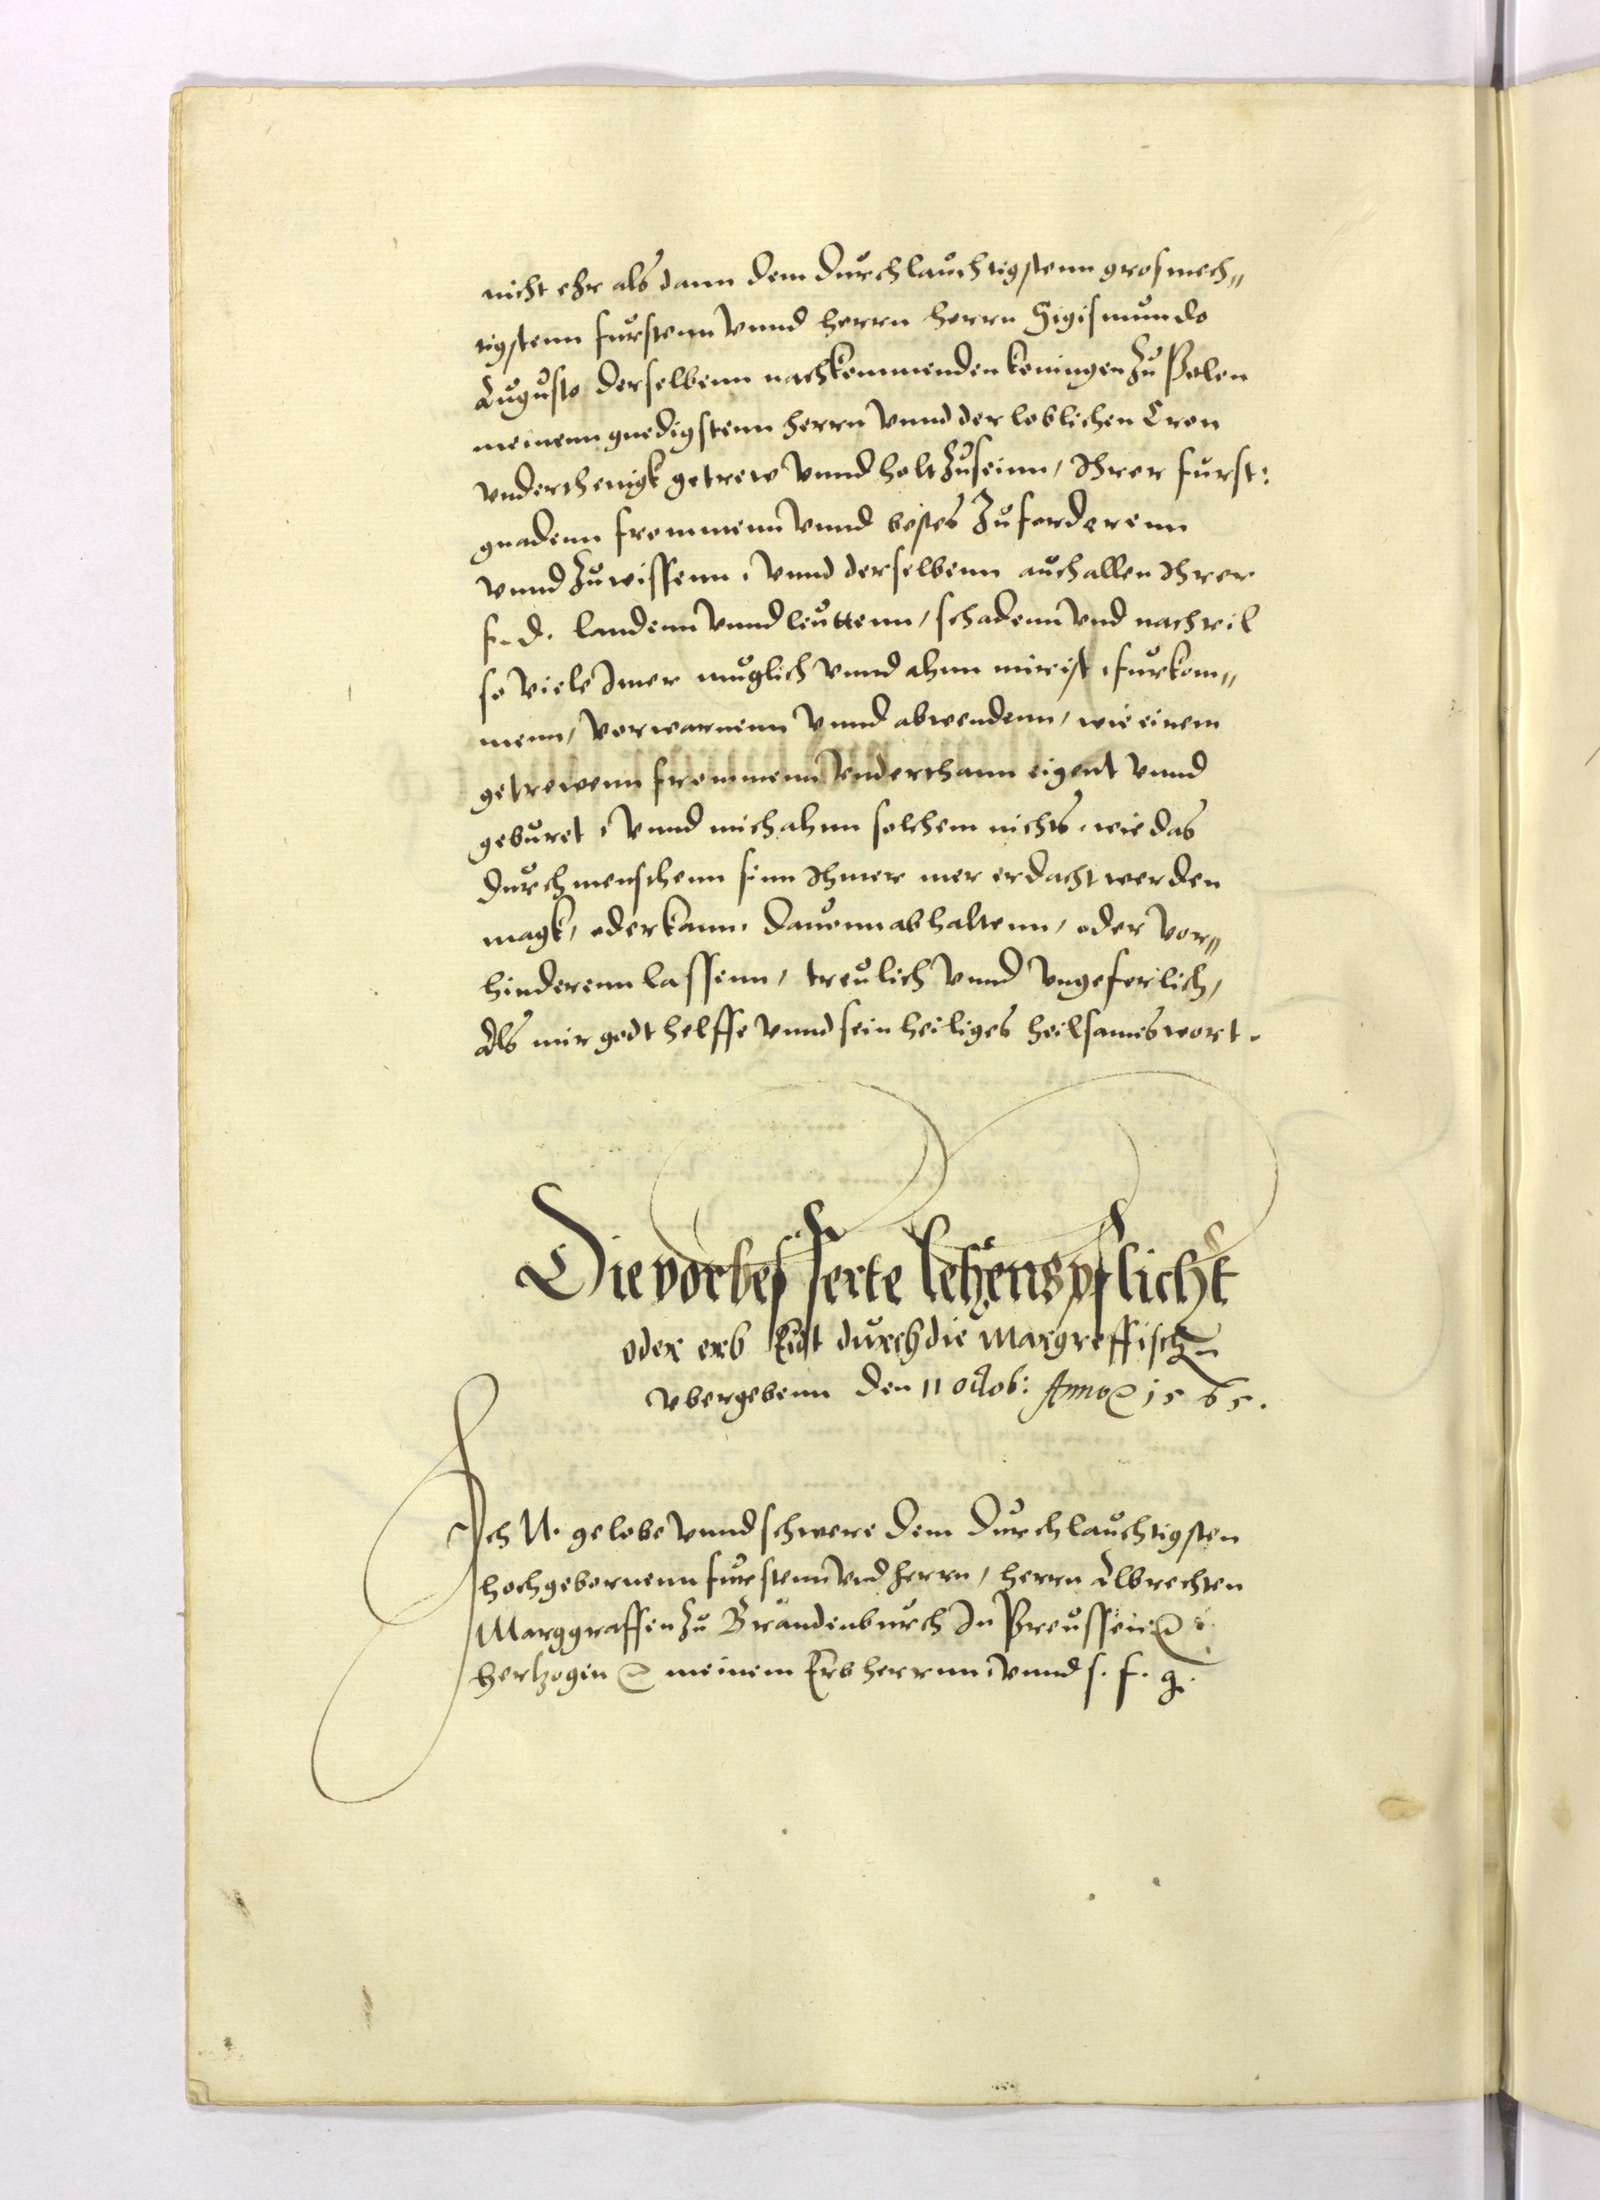 nicht ehr als dann dem durchlauchtigstenn grosmech„
tigstenn furstenn vnnd herrn herrn Sigismundo
Augusto derselbenn nachkommenden koningen zu Polen
meinenn gnedigstenn herrn vnnd der loblichen Cron
vnderthenigk getrew vnnd holt zu seinn, Ihrer furst:
gnadenn frommenn vnnd bestes zu forderenn
vnnd zu wissenn, vnnd derselbenn auch allen Ihrer
f. d. landenn vnnd leuttenn, schadenn vnd nachteil
so viele Imer muglich vnnd ahnn mir ist, furkom„
menn, vorwarnenn vnnd abwendenn, wie einem
getrewenn frommenn vnderthann eigent vnnd
geburet, vnnd mich ahnn solchem nichts, wie das
durch menschenn sinn Ihmer mer erdacht werden
magk, oder kann, dauonn abhaltenn, oder vor„
hinderenn lassenn, treulich vnnd vngeferlich,
Als mir godt helffe vnnd sein heiliges heilsames wort.
Die vorbesserte lehenspflicht
oder erb Eidt durch die Margreffischen
vbergebenn den 11 octob: Anno 1565.
Ich N. gelobe vnnd schwere dem Durchlauchtigsten
hochgebornenn furstenn vnd herrn, herrn Albrechten
Marggraffen zu Brandenburch In Preussen
hertzogen meinem Erbherrnn, vnnd s. f. g.